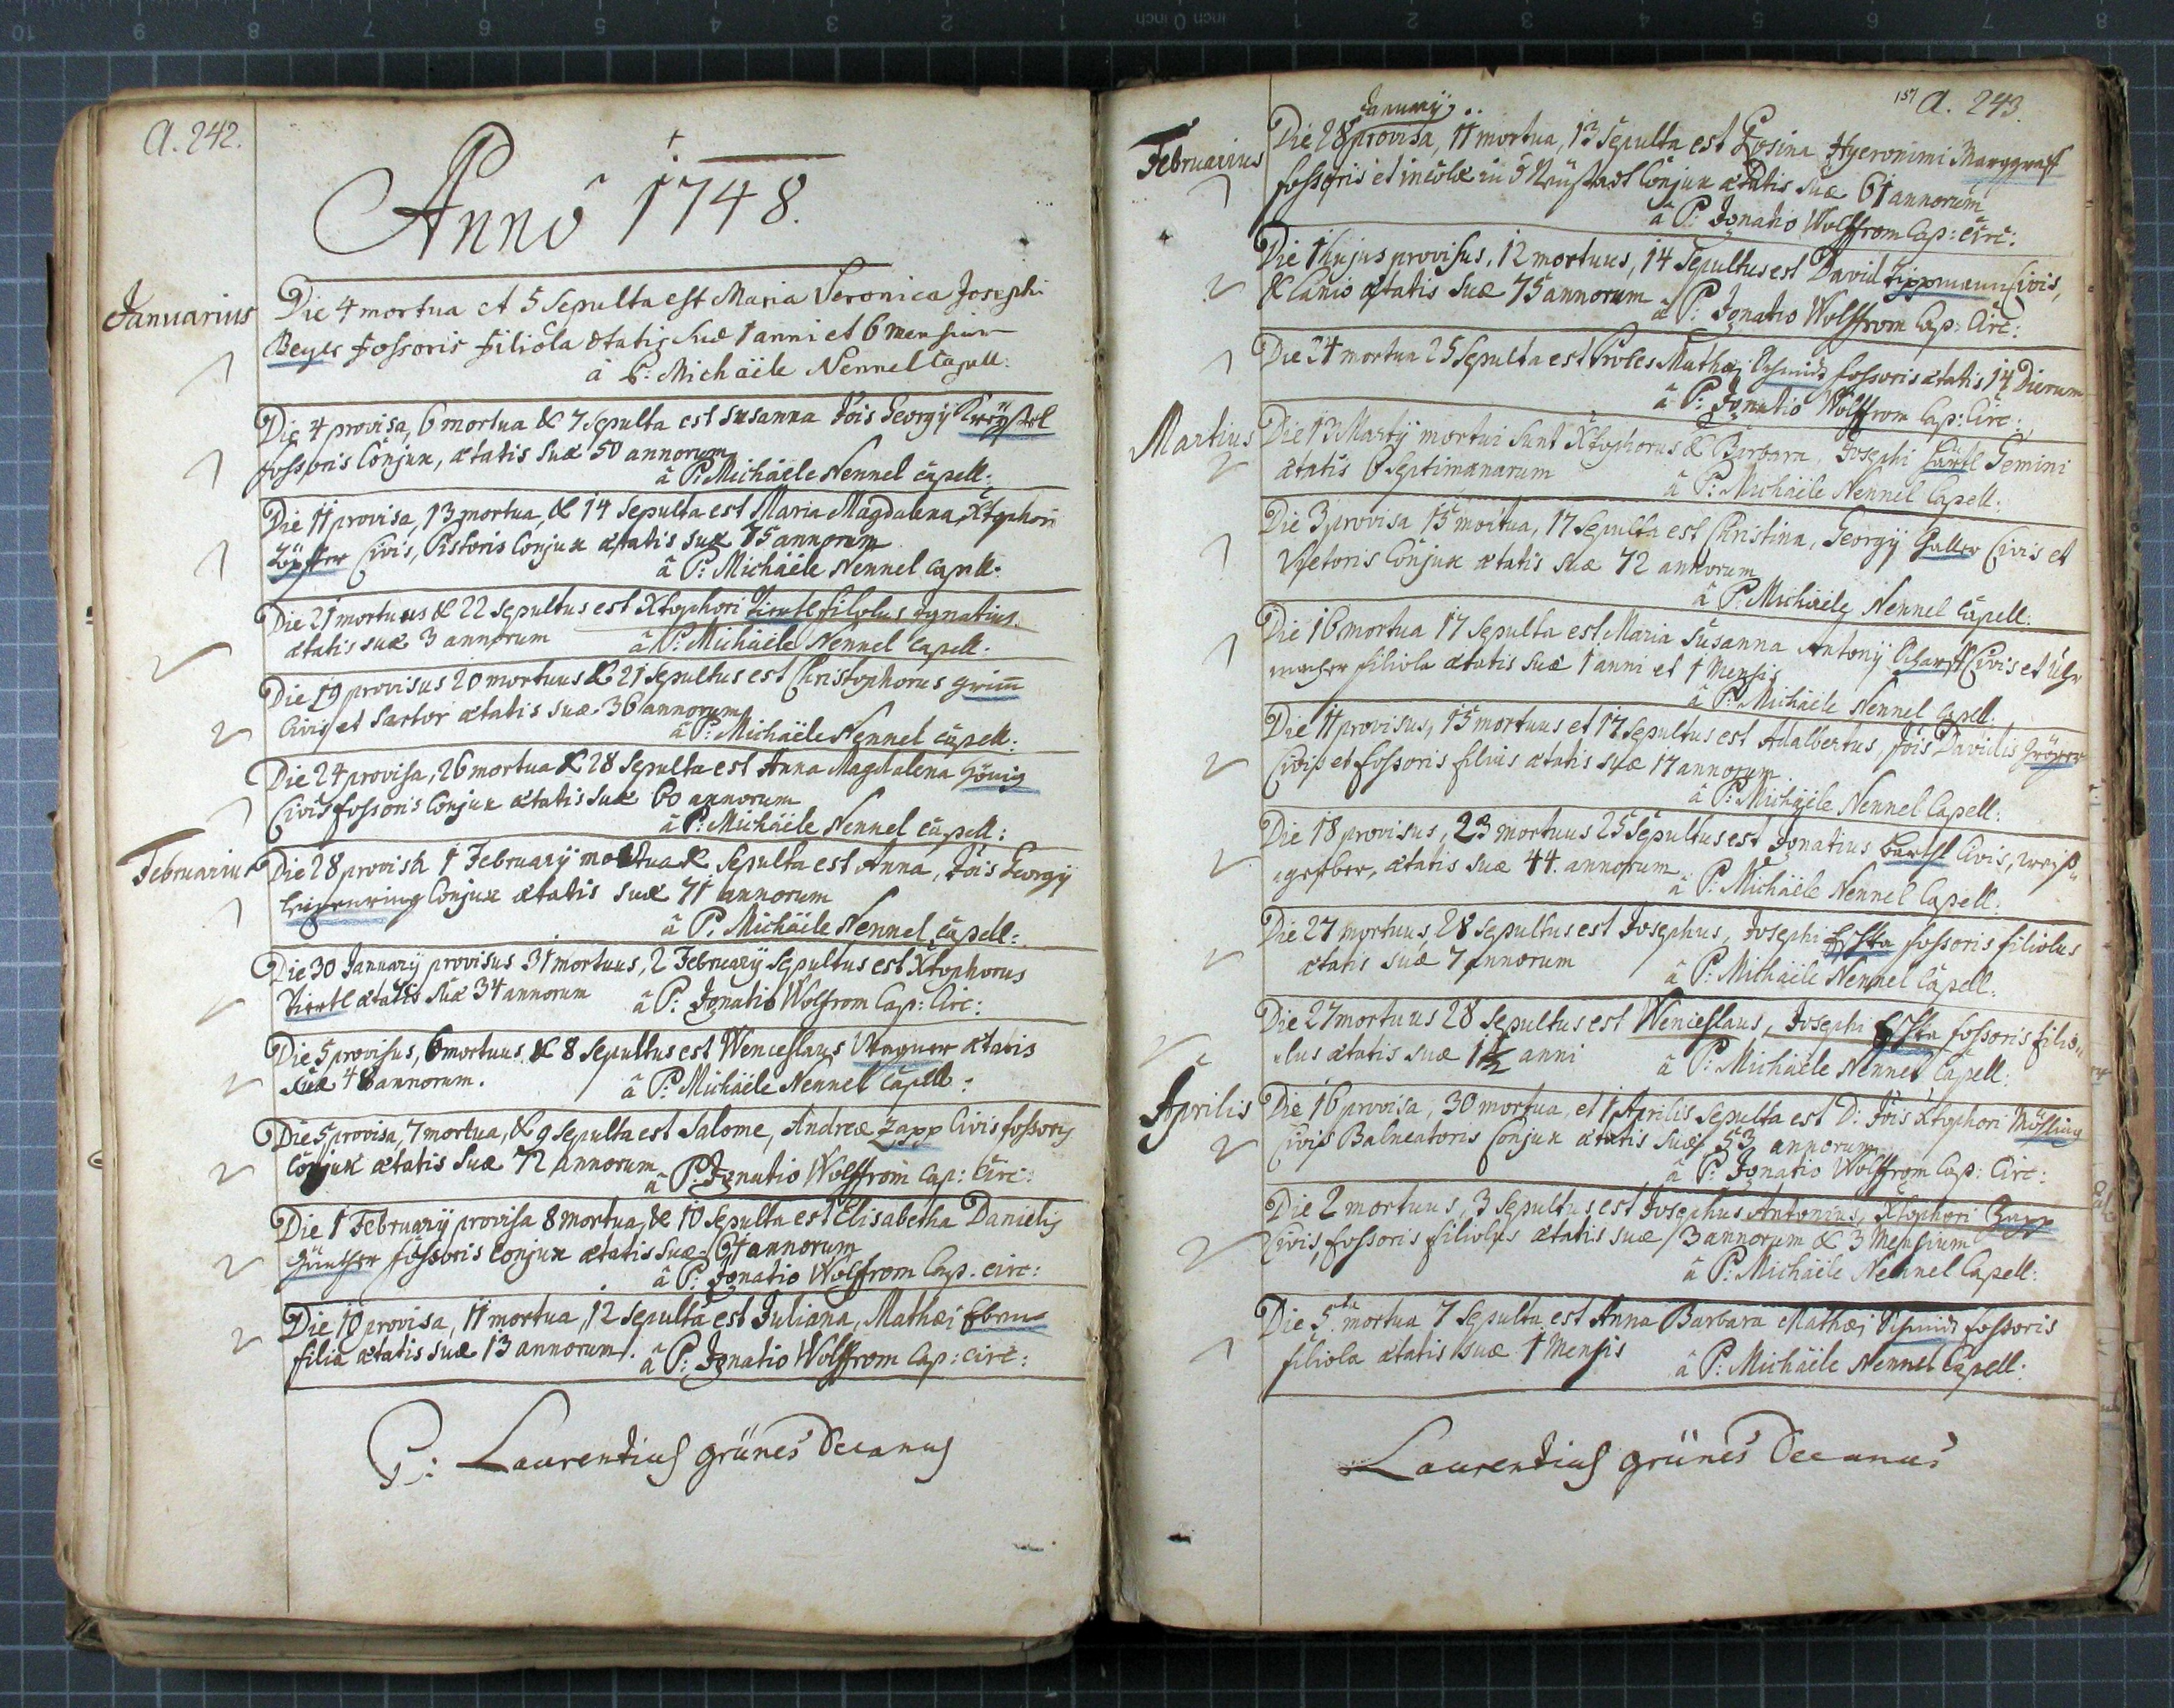 A. 242.
Anno 1748.
Januarius
Die 4 mortua et 5 Sepulta est Maria Veronica Josephi
Beyer fossoris filiola ætatis suæ 1 anni et 6 mensium
à P: Michäele Nennel Capell:
Die 4 provisa, 6 mortua & 7 Sepulta est Susanna Jois Georgÿ
fossoris Conjux, ætatis suæ 50 annorum
à P: Michäele Nennel Capell:
Die 11 provisa, 13 mortua, & 14 Sepulta est Maria Magdalena, Xtophori
Civis, Pistoris Conjux ætatis suæ 75 annorum
à P: Michäele Nennel Capell:
Die 21 mortuus & 22 Sepultus est Xtophori filolus Ignatius
ætatis suæ 3 annorum à P: Michäele Nennel Capell:
Die 19 provisus 20 mortuus & 21 Sepultus est Christophorus grim̄
Civis et Sartor ætatis suæ 36 annorum
à P: Michäele Nennel Capell:
Die 24 provisa, 26 mortua & 28 Sepulta est Anna Magdalena
Civis fossoris Conjux ætatis suæ 60 annorum
à P: Michäele Nennel Capell:
Februarius
Die 28 provisa 1 Februarÿ mortua & Sepulta est Anna, Jois Georgÿ
Conjux ætatis suæ 71 annorum
à P: Michäele Nennel Capell:
Die 30 Januarÿ provisus 31 mortuus, 2 Februarÿ Sepultus est Xtophorus
ætatis suæ 34 annorum à P: Ignatio Wolffrom Cap: Circ:
Die 5 provisus, 6 mortuus & 8 Sepultus est Wenceslaus Wagner ætatis
suæ 48 annorum. à P: Michäele Nennel Capell:
Die 5 provisa, 7 mortua, & 9 Sepulta est Salome, Andreæ Zapp Civis fossoris
Conjux ætatis suæ 72 annorum
à P: Ignatio Wolffrom Cap: Circ:
Die 1 Februarÿ provisa 8 mortua, & 10 Sepulta est Elisabetha Danielis
Günther fossoris Conjux ætatis suæ 64 annorum
à P: Ignatio Wolffrom Cap. Circ:
Die 10 provisa, 11 mortua, 12 Sepulta est Juliana, Mathæi
filia ætatis suæ 13 annorum. à P: Ignatio Wolffrom Cap: Circ:
P: Laurentius grünes Decanus
157 A. 243.
Februarius
Januarÿ
Die 28 provisa, 11 mortua, 13 Sepulta est Rosina Hyeronimi Marggraf
fossoris et incolæ in Neüstadt Conjux ætatis suæ 61 annorum
à P: Ignatio Wolffrom Cap: Circ:
Die 1 hujus provisus, 12 mortuus, 14 Sepultus est David Lippmann Civis,
& Lanio ætatis suæ 75 annorum à P: Ignatio Wolffrom Cap: Circ:
Die 24 mortua 25 Sepulta est Proles Mathæi Schmidt fossoris ætatis 14 Dierum
à P: Ignatio Wolffrom Cap: Circ:
Martius
Die 13 Martÿ mortui sunt Xtophorus & Barbara, Josephi Härtl Gemini
ætatis 6 Septimanarum à P: Michäele Nennel Capell:
Die 3 provisa 15 mortua, 17 Sepulta est Christina, Georgÿ Civis et
Vietoris Conjux ætatis suæ 72 annorum
à P: Michäele Nennel Capell:
Die 16 mortua 17 Sepulta est Maria Susanna Antonÿ Civis et Uhr
macher filiola ætatis suæ 1 anni et 1 Mensis
à P: Michäele Nennel Capell:
Die 11 provisus, 15 mortuus et 17 Sepultus est Adalbertus, Jois Davidis
Civis et fossoris filius ætatis suæ 17 annorum
à P: Michäele Nennel Capell:
Die 18 provisus, 23 mortuus 25 Sepultus est Ignatius Civis, weiß„
„gerber, ætatis suæ 44. annorum
à P: Michäele Nennel Capell:
Die 27 mortuus, 28 Sepultus est Josephus, Josephi fossoris filiolus
ætatis suæ 7 annorum à P: Michäele Nennel Capell:
Die 27 mortuus 28 Sepultus est Wenceslaus, Josephi fossoris filio„
„lus ætatis suæ 1½ anni à P: Michäele Nennel Capell:
Aprilis
Die 16 provisa, 30 mortua, et 1 Aprilis Sepulta est D: Jois Xtophori
Civis Balneatoris Conjux ætatis suæ 53 annorum
à P: Ignatio Wolffrom Cap: Circ:
Die 2 mortuus, 3 Sepultus est Josephus Antonius, Xtophori Zapp
Civis, fossoris filiolus ætatis suæ 3 annorum & 3 Mensium
à P: Michäele Nennel Capell:
Die 5ta mortua 7 Sepulta est Anna Barbara Mathæi Schmidt fossoris
filiola ætatis suæ 1 Mensis à P: Michäele Nennel Capell:
Laurentius grünes Decanus